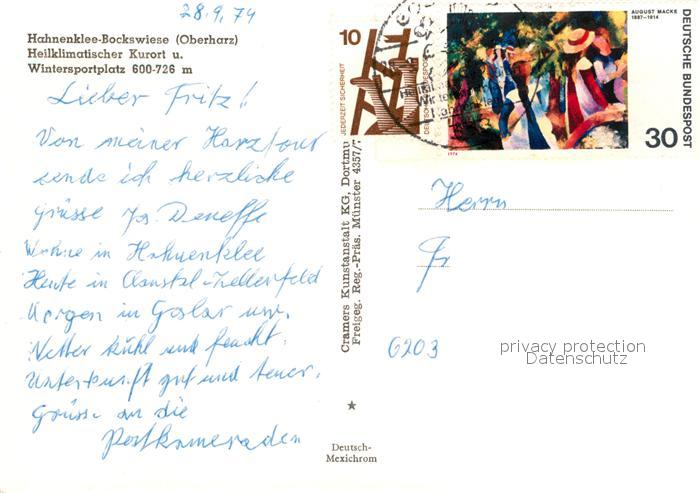 28.9.74
Hahnenklee-Bockswiese (Oberharz)
Heilklimatischer Kurort u.
Wintersportplatz 600-726 m
Lieber Fritz!
Von meiner Harztour
sende ich herzliche
Grüsse Deneffe
Wohne in Hahnenklee
Heute in Claustal-Zellerfeld
Morgen in Goslar usw.
Wetter kühl und feucht.
Unterkunft gut und teuer.
Grüsse an die
Postkameraden
10
JEDERZEIT SICHERHEIT
DEUTSCHE BUNDESPOST
AUGUST MACKE
1887-1914
DEUTSCHE BUNDESPOST
30
1974
Cramers Kunstanstalt KG, Dortmu
Freigeg. Reg.-Präs. Münster 4357/7
Herrn
Fr
6203
privacy protection
Datenschutz
★
Deutsch-
Mexichrom